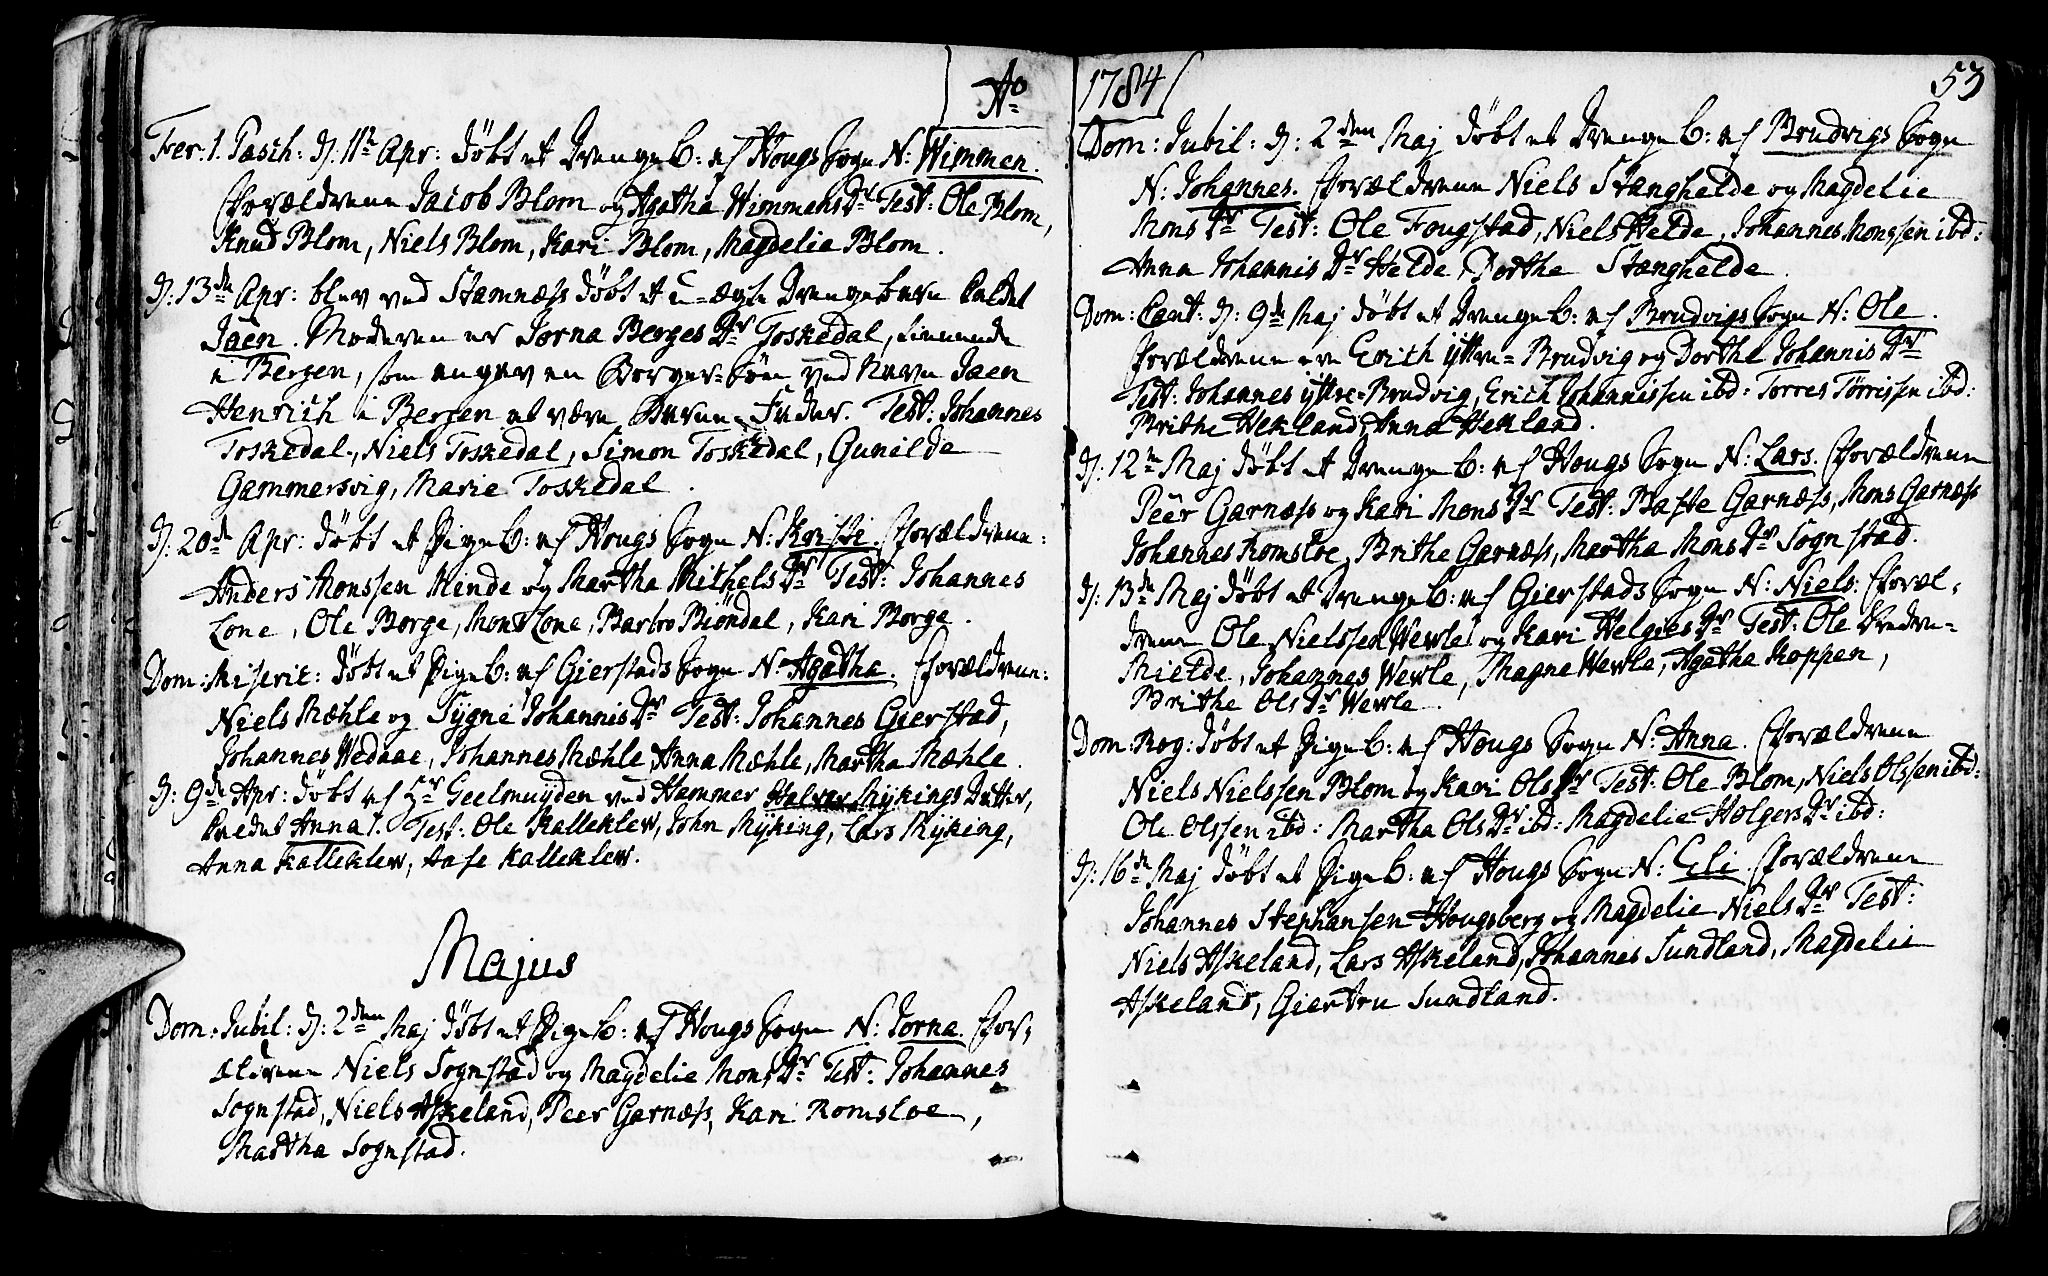 Ao
Fer: 1. Pasch: D: 11te Apr: döbt et Drenge B: af Hougs Sogn N: Wimmen.
Forældrene Jacob Blom og Agatha Wimmens Dr Test: Ole Blom,
Knud Blom, Niels Blom, Kari Blom, Magdelia Blom.
D: 13de Apr: blev ved Stamness döbt et u-ægte Drengebarn kaldet
Jaen. Moderen er Jorna Berges Dr Toskedal, tienende
i Bergen, som angav en Borger-Sön ved Navn Jaen
Henrich i Bergen at være Barne-Fader. Test: Johannes
Toskedal, Niels Toskedal, Simon Toskedal, Gunilde
Gammersvig, Marie Toskedal.
D: 20de Apr: döbt et Pige B: af Hougs Sogn N: Kristi. Forældrene:
Anders Monssen Hinde og Martha Mithels Dr Test: Johannes
Lone, Ole Borge, Mons Lone, Barbro Biöndal, Kari Borge.
Dom: Miseric: döbt et Pige B: af Gierstads Sogn N: Agatha. Forældrene:
Niels Mæhle og Sygni Johannis Dr Test: Johannes Gierstad,
Johannes Wedaae, Johannes Mæhle, Anna Mæhle, Martha Mæhle.
D: 9de Apr: döbt af Hr Geelmuyden ved Hammer Halvor Myking's Datter,
kaldet Anna. Test: Ole Kalleklev, John Myking, Lars Myking,
Anna Kalleklev, Aase Kalleklev.
Majus
Dom: Jubil: D: 2den Maj döbt et Pige B: af Hougs Sogn N: Jorna. For-
ældrene Niels Sognstad og Magdelie Mons Dr Test: Johannes
Sognstad, Niels Askeland, Peer Garnæss, Kari Romsloe,
Martha Sognstad.
1784
53
Dom: Jubil: D: 2den Maj döbt et Drenge B: af Brudvigs Sogn
N: Johannes. Forældrene Niels Stanghelde og Magdelie
Mons Dr Test: Ole Fougstad, Niels Helde, Johannes Monssen ibd:
Anna Johannis Dr Helde, Dorthe Stanghelde.
Dom: Cant: D: 9de Maj döbt et Drenge B: af Brudvigs Sogn N: Ole.
Forældrene ere Erich yttre-Brudvig og Dorthe Johannis Dr
Test: Johannes yttre-Brudvig, Erich Johannissen ibd: Torres Törrissen ibd:
Brithe Hekland, Anna Hekland.
D: 12te Maj döbt et Drenge B: af Hougs Sogn N: Lars. Forældrene
Peer Garnæss og Kari Mons Dr Test: Baste Garnæss, Mons Garnæss
Johannes Romsloe, Brithe Garnæss, Martha Mons Dr Sognstad.
D: 13de Maj döbt et Drenge B: af Gierstads Sogn N: Niels. Foræl-
drene Ole Nielssen Wevle og Kari Helgies Dr Test: Ole
Mielde, Johannes Wevle, Magne Wevle, Agatha Koppen,
Brithe Ols Dr Wevle.
Dom: Rog: döbt et Pige B: af Hougs Sogn N: Anna. Forældrene
Niels Nielssen Blom og Kari Ols Dr Test: Ole Blom, Niels Olssen ibd:
Ole Olssen ibd: Martha Ols Dr ibd: Magdelie Holgers Dr ibd:
D: 16de Maj döbt et Pige B: af Hougs Sogn N: Eli. Forældrene
Johannes Stephansen Hougsberg og Magdelie Niels Dr Test:
Niels Askeland, Lars Askeland, Johannes Sundland, Magdelie
Askeland, Giertru Sundland.